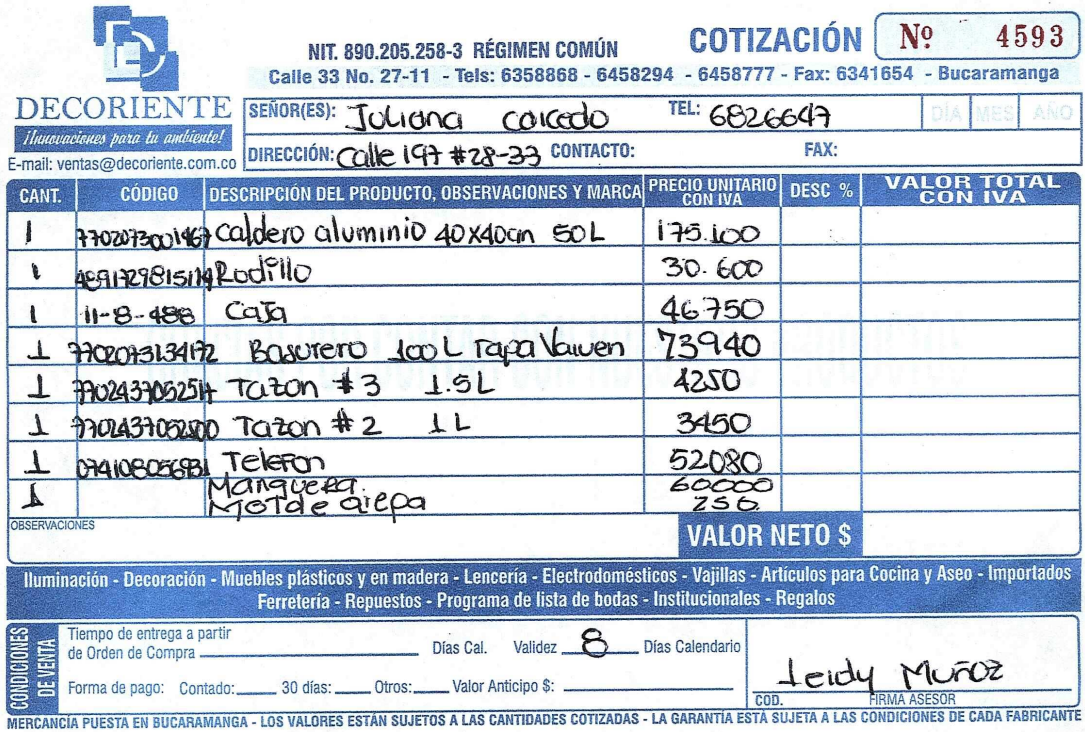 NIT. 890.205.258-3 RÉGIMEN COMÚN
COTIZACIÓN Nº 4593
Calle 33 No. 27-11 - Tels: 6358868 - 6458294 - 6458777 - Fax: 6341654 - Bucaramanga
DECORIENTE
¡Innovaciones para tu ambiente!
E-mail: ventas@decoriente.com.co
SEÑOR(ES): Juliana caicedo TEL: 6826647 DÍA MES AÑO
DIRECCIÓN: Calle 197 #28-33 CONTACTO: FAX:
CANT. CÓDIGO DESCRIPCIÓN DEL PRODUCTO, OBSERVACIONES Y MARCA PRECIO UNITARIO CON IVA DESC % VALOR TOTAL CON IVA
1 7702073001467 Caldero aluminio 40x40cm 50L 175.100
1 Rodillo 30.600
1 11-8-488 Caja 46750
1 Basurero 100L Tapa Vaiven 73940
1 Tazon #3 1.5L 4250
1 Tazon #2 1L 3450
1 Telefon 52080
1 Manguera. 60000
Molde arepa 250.
OBSERVACIONES
VALOR NETO $
Iluminación - Decoración - Muebles plásticos y en madera - Lencería - Electrodomésticos - Vajillas - Artículos para Cocina y Aseo - Importados
Ferretería - Repuestos - Programa de lista de bodas - Institucionales - Regalos
CONDICIONES DE VENTA
Tiempo de entrega a partir
de Orden de Compra Días Cal. Validez 8 Días Calendario
Forma de pago: Contado: 30 días: Otros: Valor Anticipo $:
Leidy Muñoz
COD. FIRMA ASESOR
MERCANCÍA PUESTA EN BUCARAMANGA - LOS VALORES ESTÁN SUJETOS A LAS CANTIDADES COTIZADAS - LA GARANTÍA ESTÁ SUJETA A LAS CONDICIONES DE CADA FABRICANTE